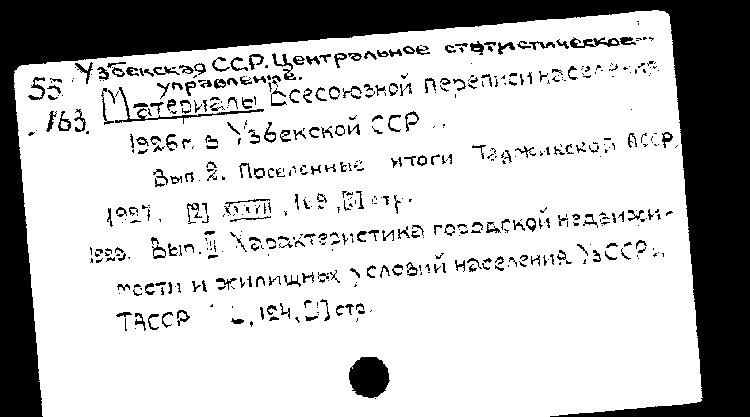 Узбекская ССР. Центральное статистическое
55 управление.
163. Материалы Всесоюзной переписи населения
1926 г. в Узбекской ССР
Вып. 2. Поселенные итоги Таджикской АССР.
1927. [2] XXXVII, 169, стр.
1928. Вып. III. Характеристика городской недвижи-
мости и жилищных условий населения УзССР и
ТАССР 124, стр.